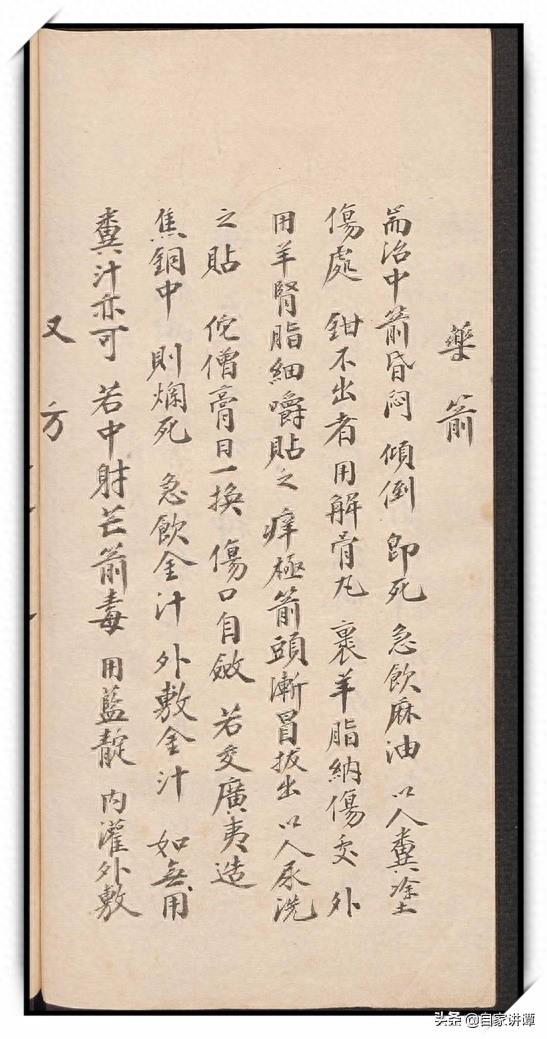 藥箭
耑治中箭昏悶 傾倒 即死 急飲麻油 以人糞塗
傷處 鉗不出者用解骨丸 裹羊脂納傷交 外
用羊腎脂細嚼貼之 痒極箭頭漸冒拔出 以人尿洗
之貼 佗僧膏日一換 傷口自斂 若交廣夷造
焦銅中 則爛死 急飲金汁 外敷金汁 如無用
糞汁亦可 若中射芒箭毒 用藍靛 內灌外敷
又方
头条 @自家讲谭